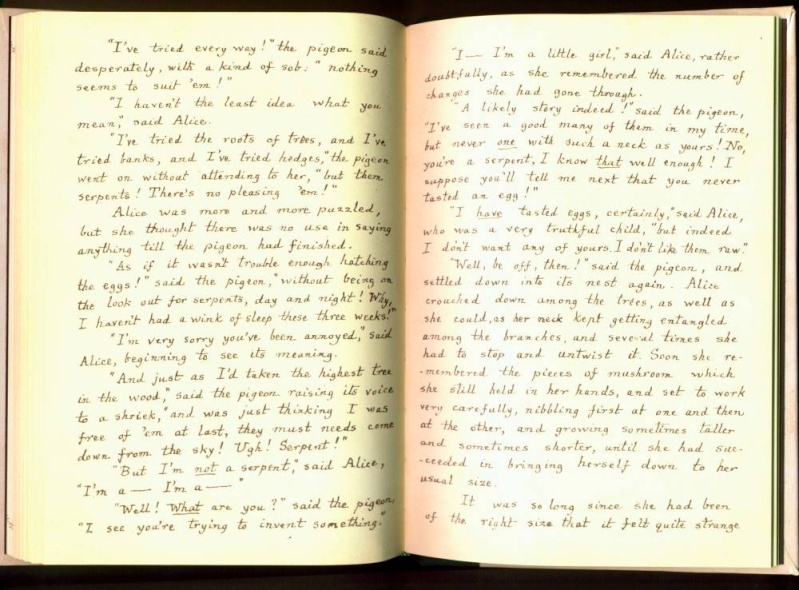 "I've tried every way!" the pigeon said
desperately, with a kind of sob: "nothing
seems to suit 'em!"
"I haven't the least idea what you
mean," said Alice.
"I've tried the roots of trees, and I've
tried banks, and I've tried hedges," the pigeon
went on without attending to her, "but them
serpents! There's no pleasing 'em!"
Alice was more and more puzzled,
but she thought there was no use in saying
anything till the pigeon had finished.
"As if it wasn't trouble enough hatching
the eggs!" said the pigeon, "without being on
the look out for serpents, day and night! Why,
I haven't had a wink of sleep these three weeks!"
"I'm very sorry you've been annoyed," said
Alice, beginning to see its meaning.
"And just as I'd taken the highest tree
in the wood," said the pigeon raising its voice
to a shriek, "and was just thinking I was
free of 'em at last, they must needs come
down from the sky! Ugh! Serpent!"
"But I'm not a serpent," said Alice,
"I'm a — I'm a — "
"Well! What are you?" said the pigeon,
"I see you're trying to invent something."
"I — I'm a little girl," said Alice, rather
doubtfully, as she remembered the number of
changes she had gone through.
"A likely story indeed!" said the pigeon,
"I've seen a good many of them in my time,
but never one with such a neck as yours! No,
you're a serpent, I know that well enough! I
suppose you'll tell me next that you never
tasted an egg!"
"I have tasted eggs, certainly," said Alice,
who was a very truthful child, "but indeed
I don't want any of yours. I don't like them raw."
"Well, be off, then!" said the pigeon, and
settled down into its nest again. Alice
crouched down among the trees, as well as
she could, as her neck kept getting entangled
among the branches, and several times she
had to stop and untwist it. Soon she re-
-membered the pieces of mushroom which
she still held in her hands, and set to work
very carefully, nibbling first at one and then
at the other, and growing sometimes taller
and sometimes shorter, until she had suc-
-ceeded in bringing herself down to her
usual size.
It was so long since she had been
of the right size that it felt quite strange